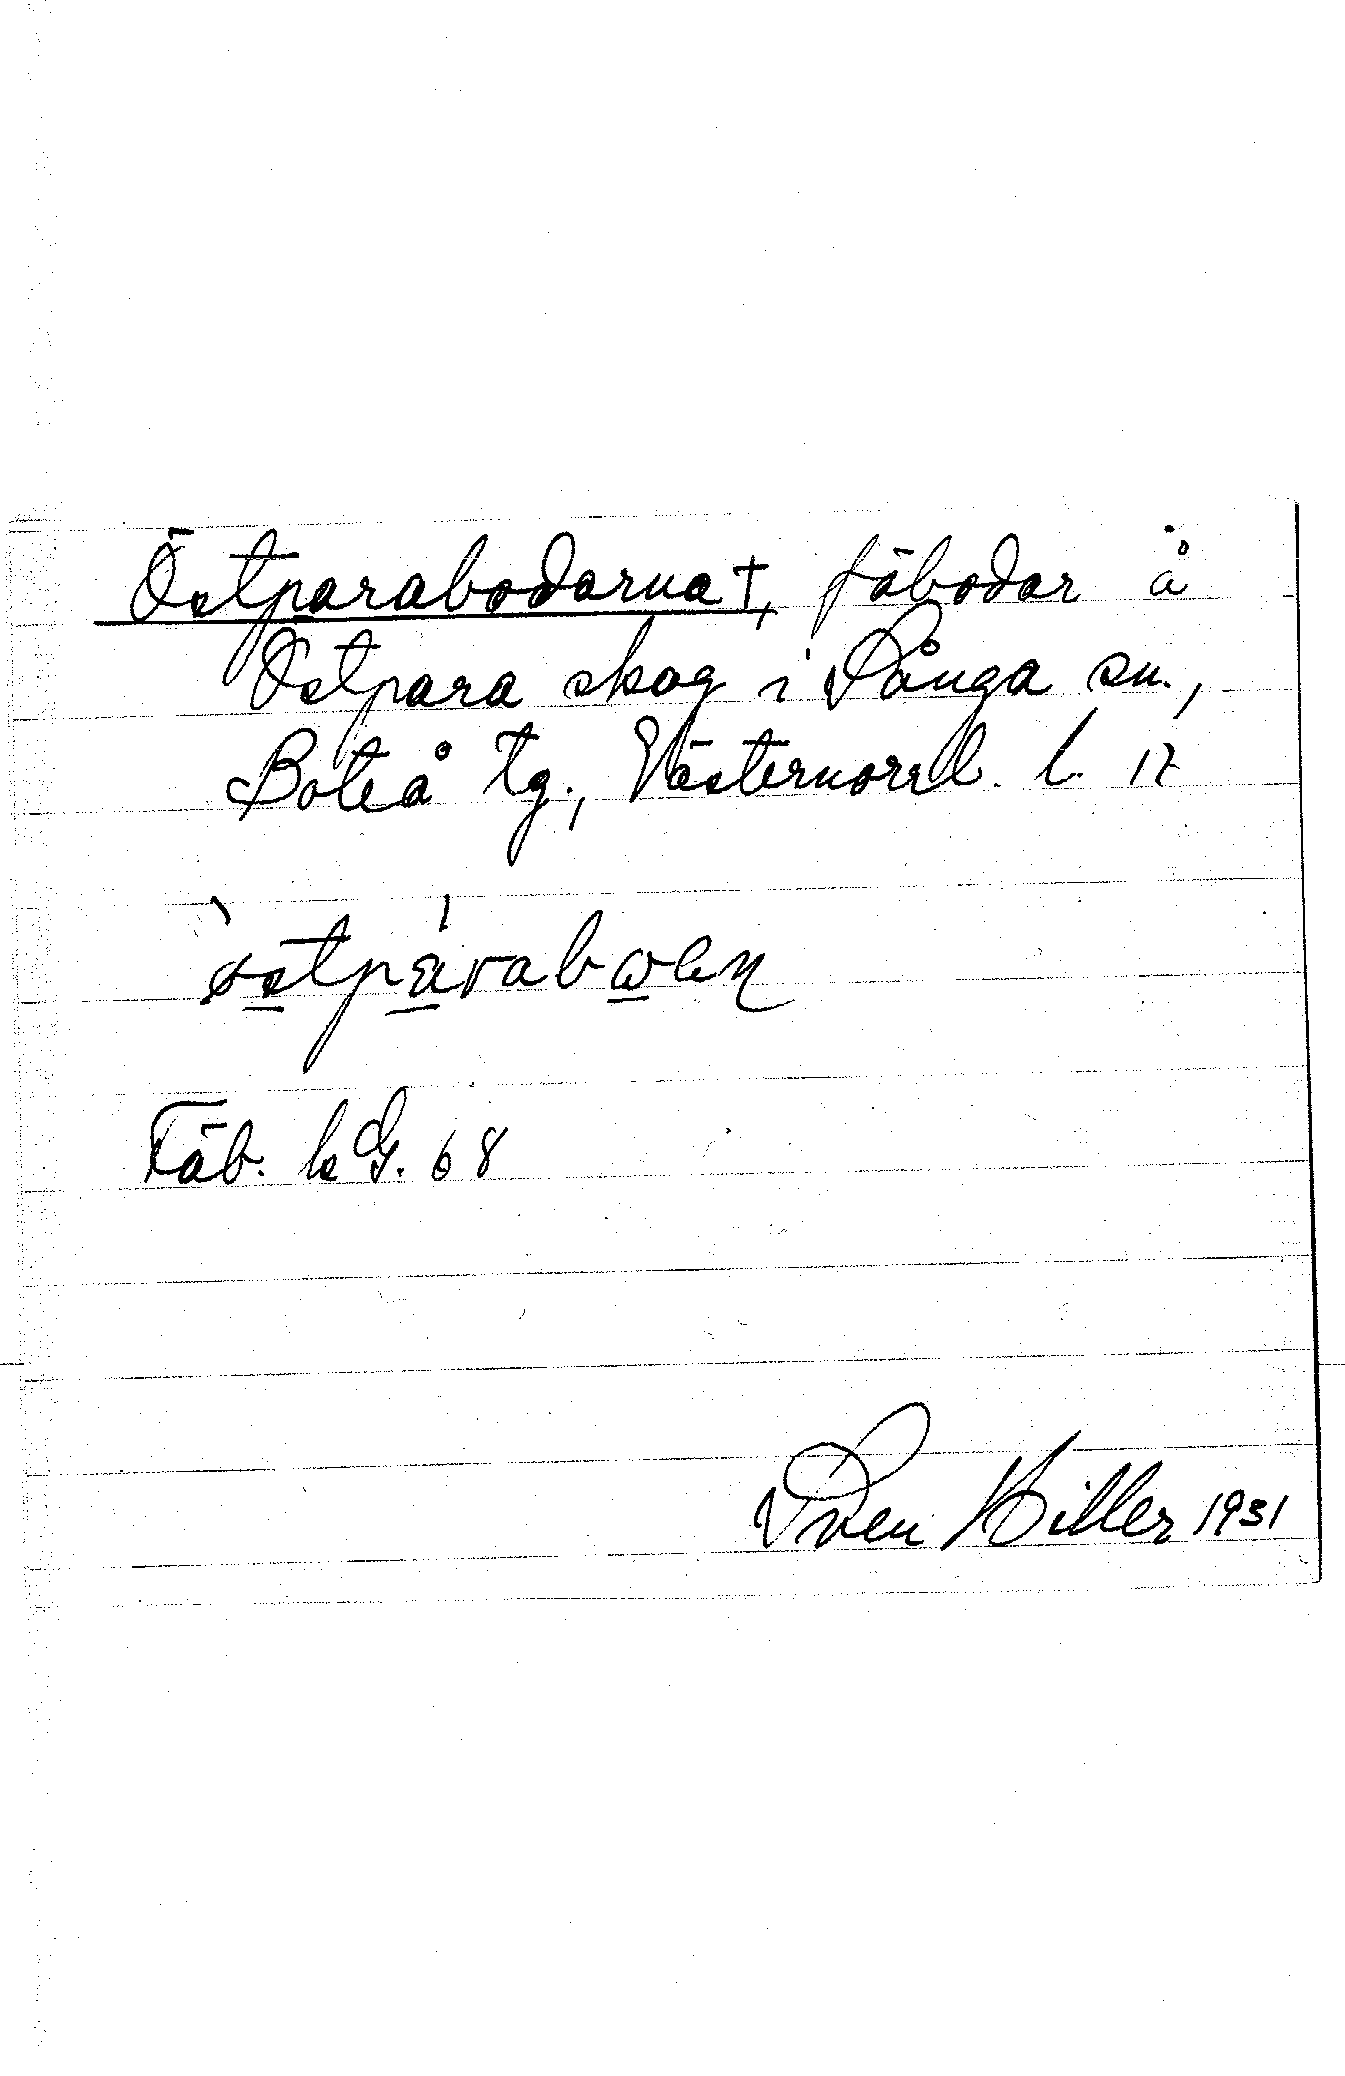 Östparabodarna †, fäbodar å
Östpara skog i Långa sn.,
Boteå tg., Västernorrl. l. 17
Fäb. k G. 68
Sven Hiller 1931